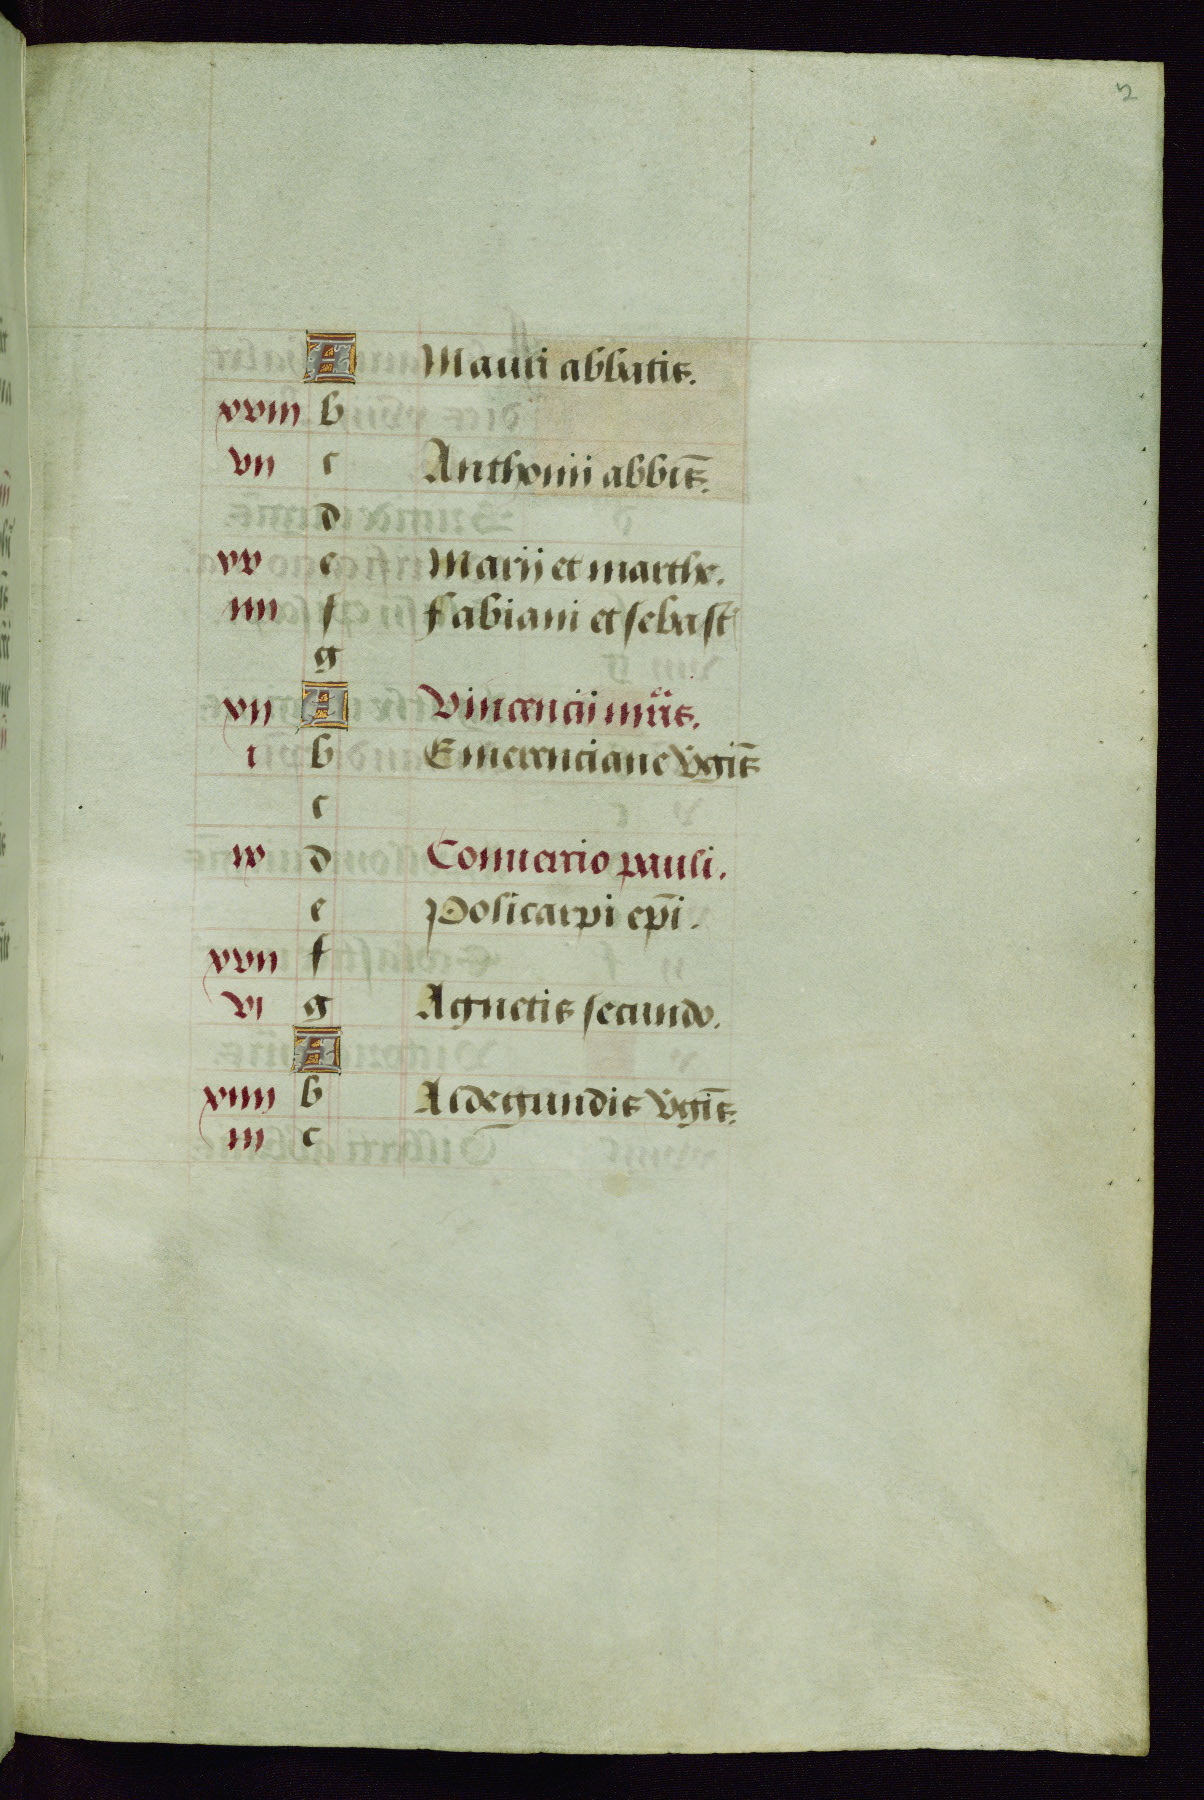 2
A Mauri abbatis.
xviii b
vii c Anthonii abbis.
d
xv e Marii et marthe.
iiii f Fabiani et sebasti
g
xii A Vincencii mris.
i b Emerenciane vgis
c
ix d Conuersio pauli.
e Policarpi epi.
xvii f
vi g Agnetis secundo.
A
xiiii b Aldegundis vgis.
iii c